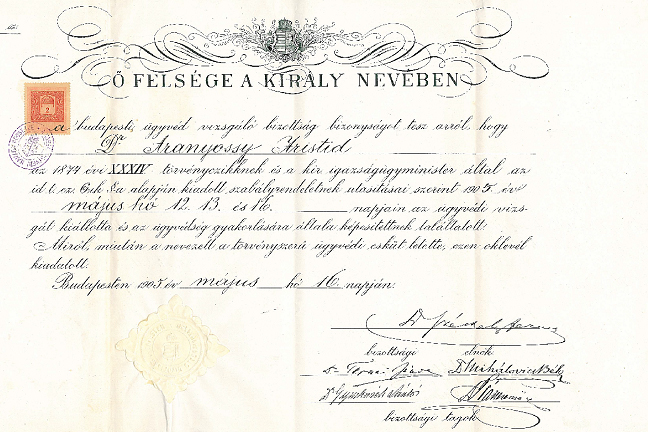 Ő FELSÉGE A KIRÁLY NEVÉBEN
2
A budapesti ügyvéd vizsgáló bizottság bizonyságot tesz arról, hogy
Dr Aranyossy Arisztid
az 1874 évi XXXIV törvényczikknek és a kir. igazságügyminister által az
id. t. cz. 6ik §a alapján kiadott szabályrendeletnek utasításai szerint 1905. év
május hó 12. 13. és 16. napjain az ügyvédi vizs-
gát kiállotta és az ügyvédség gyakorlására általa képesítettnek találtatott.
Miről, miután a nevezett a törvényszerű ügyvédi esküt letette, ezen oklevél
kiadatott.
Budapesten 1905. év május hó 16. napján.
Dr
bizottsági elnök
Dr Dr Mihálovics
Dr Dr
bizottsági tagok